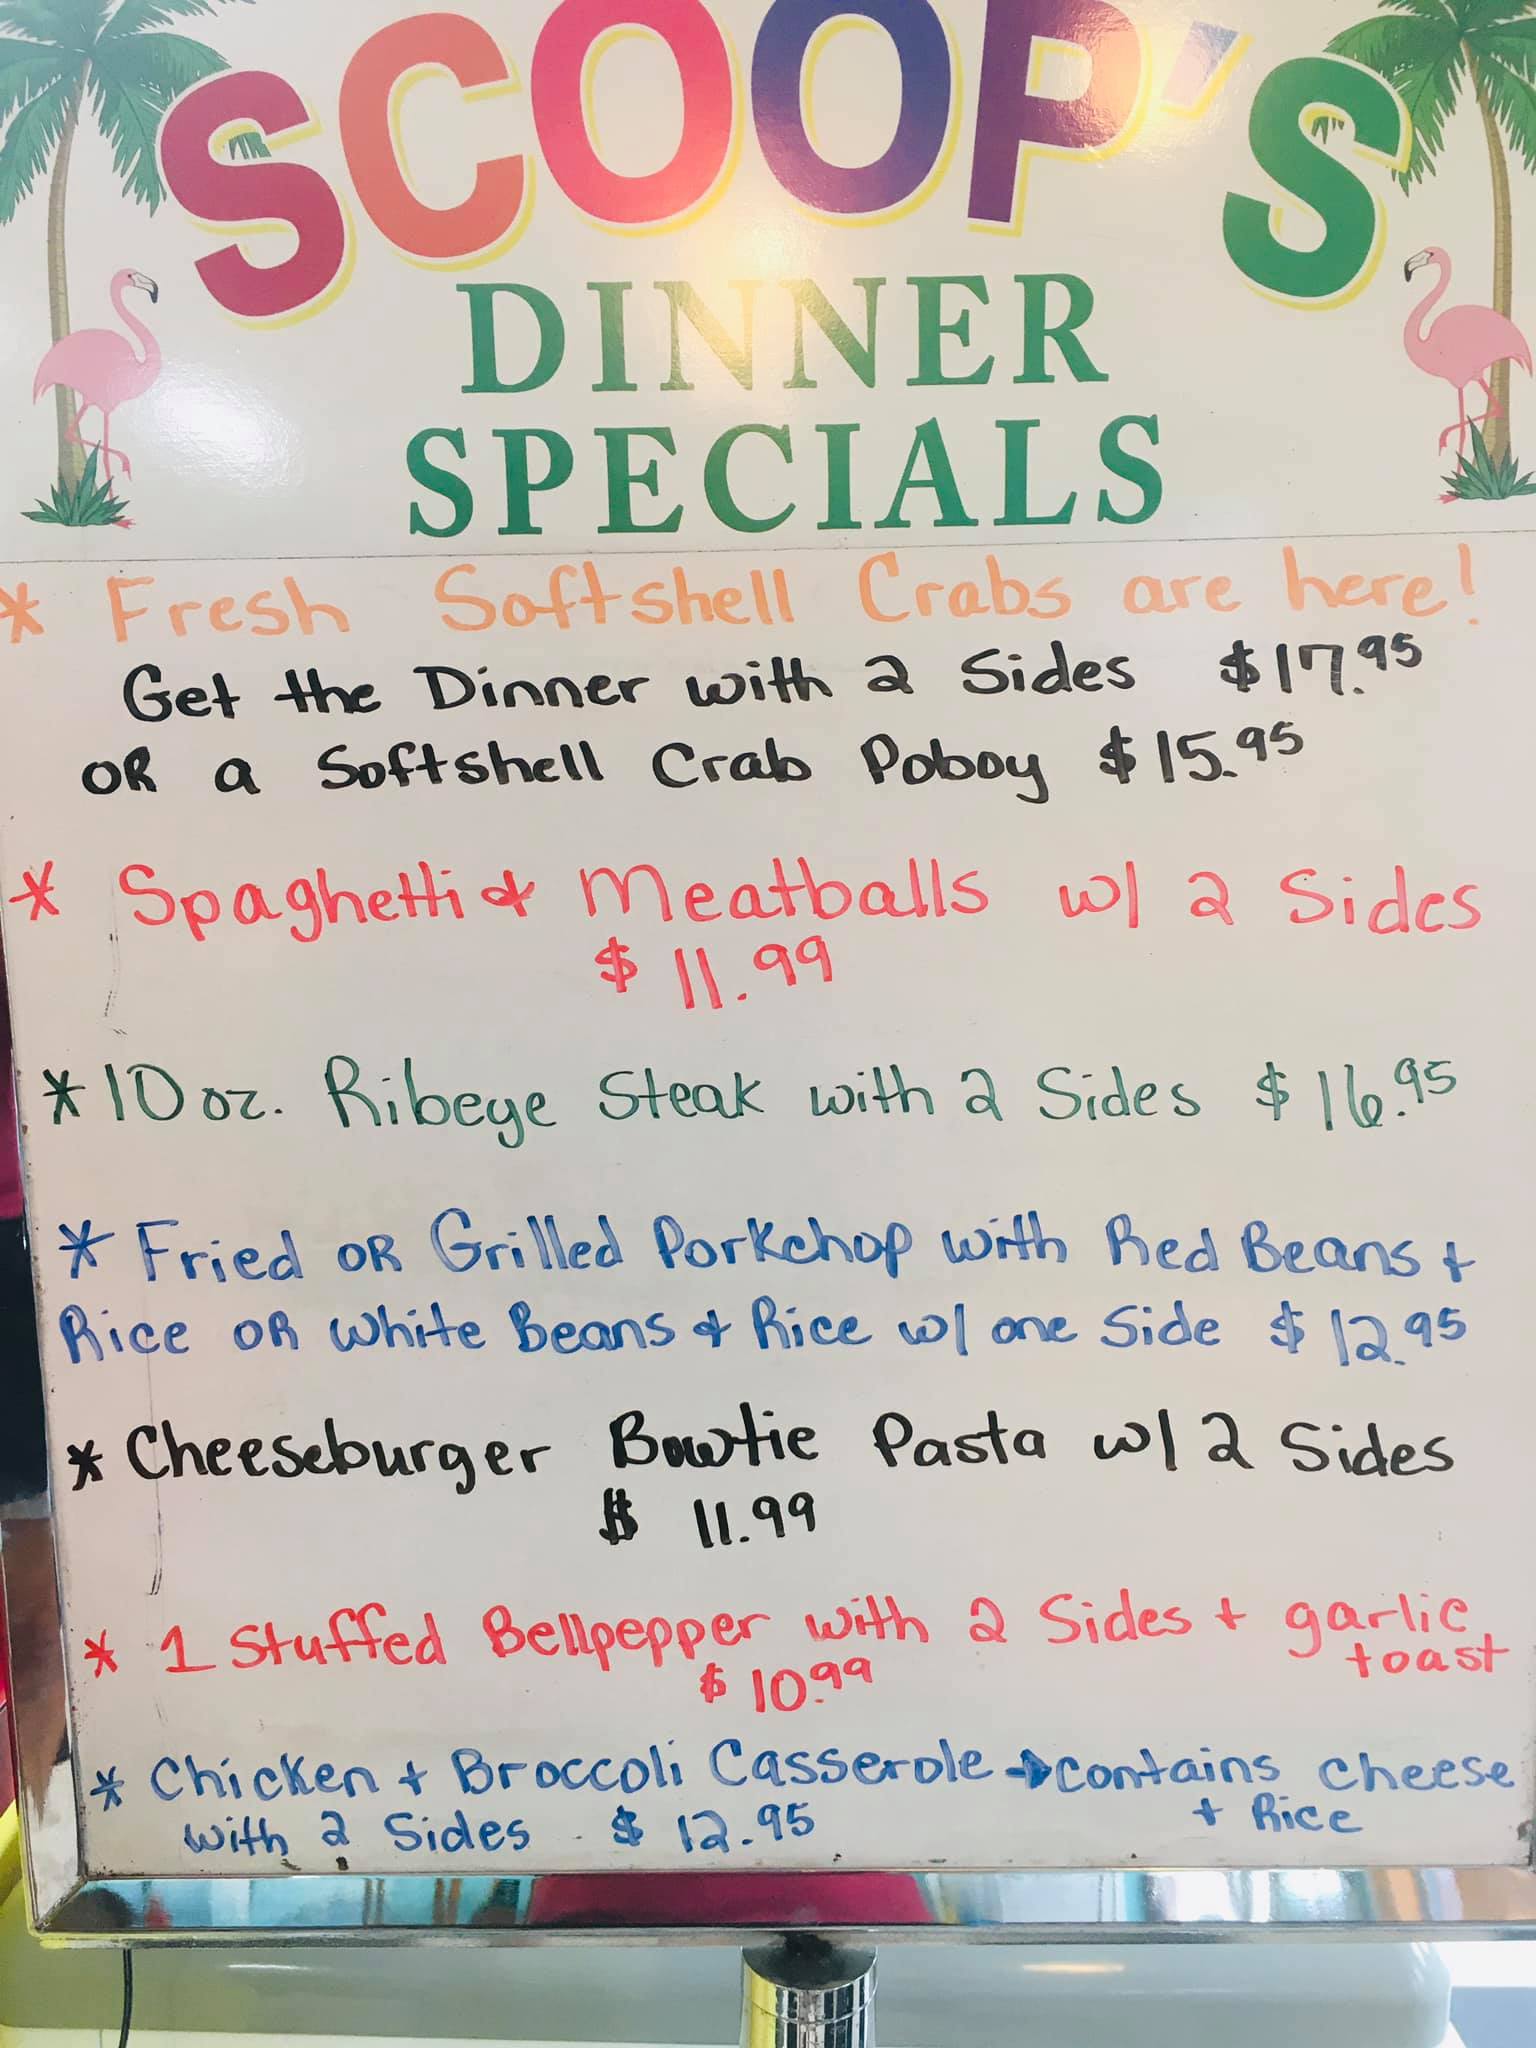 SCOOP'S
DINNER
SPECIALS
* Fresh Softshell Crabs are here!
Get the Dinner with 2 Sides $17.95
OR a Softshell Crab Poboy $15.95
* Spaghetti & Meatballs w/ 2 Sides
$ 11.99
* 10 oz. Ribeye Steak with 2 Sides $16.95
* Fried OR Grilled Porkchop with Red Beans +
Rice OR White Beans & Rice w/ one Side $12.95
* Cheeseburger Bowtie Pasta w/ 2 Sides
$ 11.99
* 1 Stuffed Bellpepper with 2 Sides + garlic
toast
$ 10.99
* Chicken + Broccoli Casserole → contains cheese
+ Rice
with 2 Sides $ 12.95